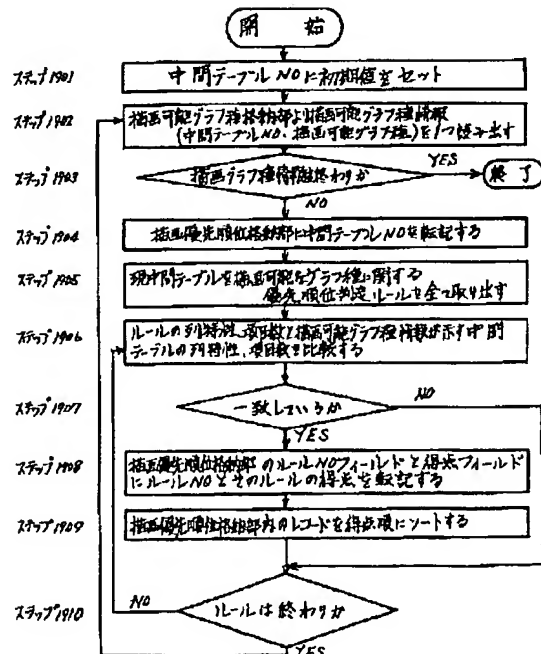 開 始
ステップ1901
中間テーブルNOに初期値をセット
ステップ1902
描画可能グラフ種格納部より描画可能グラフ種情報
(中間テーブルNO、描画可能グラフ種)を1つ読み出す
ステップ1903
描画グラフ種情報終わりか
YES
終 了
NO
ステップ1904
描画優先順位格納部に中間テーブルNOを転記する
ステップ1905
現中間テーブルで描画可能なグラフ種に関する
優先順位判定ルールを全て取り出す
ステップ1906
ルールの列特性、項目数と描画可能グラフ種情報が示す中間
テーブルの列特性、項目数を比較する
ステップ1907
一致しているか
NO
YES
ステップ1908
描画優先順位格納部のルールNOフィールドと得点フィールド
にルールNOとそのルールの得点を転記する
ステップ1909
描画優先順位格納部内のレコードを得点順にソートする
ステップ1910
ルールは終わりか
NO
YES